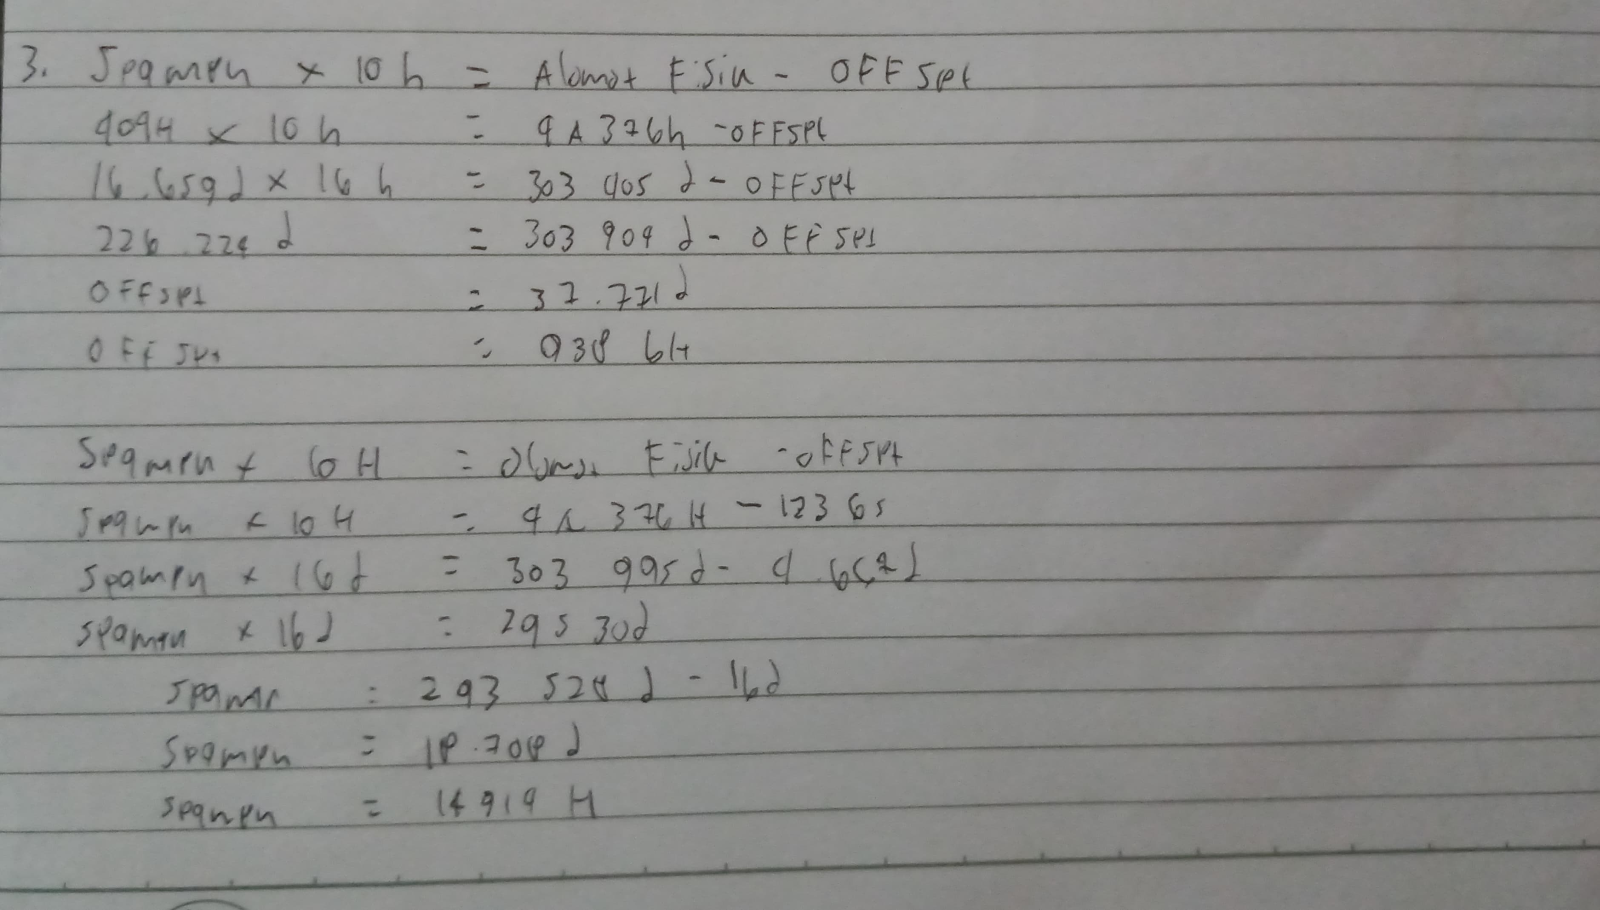 3. Segmen x 10 h = Alamat Fisik - OFFset
4094 x 10 h = 4A376h - OFFset
16.659d x 16 h = 303 405 d - OFFset
226.224 d = 303 904 d - OFFset
OFFset = 37.771d
OFFset = 938 6H
Segmen x 10 H = Alamat Fisik - OFFset
Segmen x 10 H = 4A 376 H - 1236s
Segmen x 16 d = 303 995 d -
Segmen x 16 d = 295 30d
Segmen = 293 528 d - 16d
Segmen = 18.708 d
Segmen = 14919 H